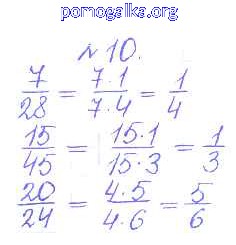 pomogalka.org
№10.
7/28 = 7·1/7·4 = 1/4
15/45 = 15·1/15·3 = 1/3
20/24 = 4·5/4·6 = 5/6